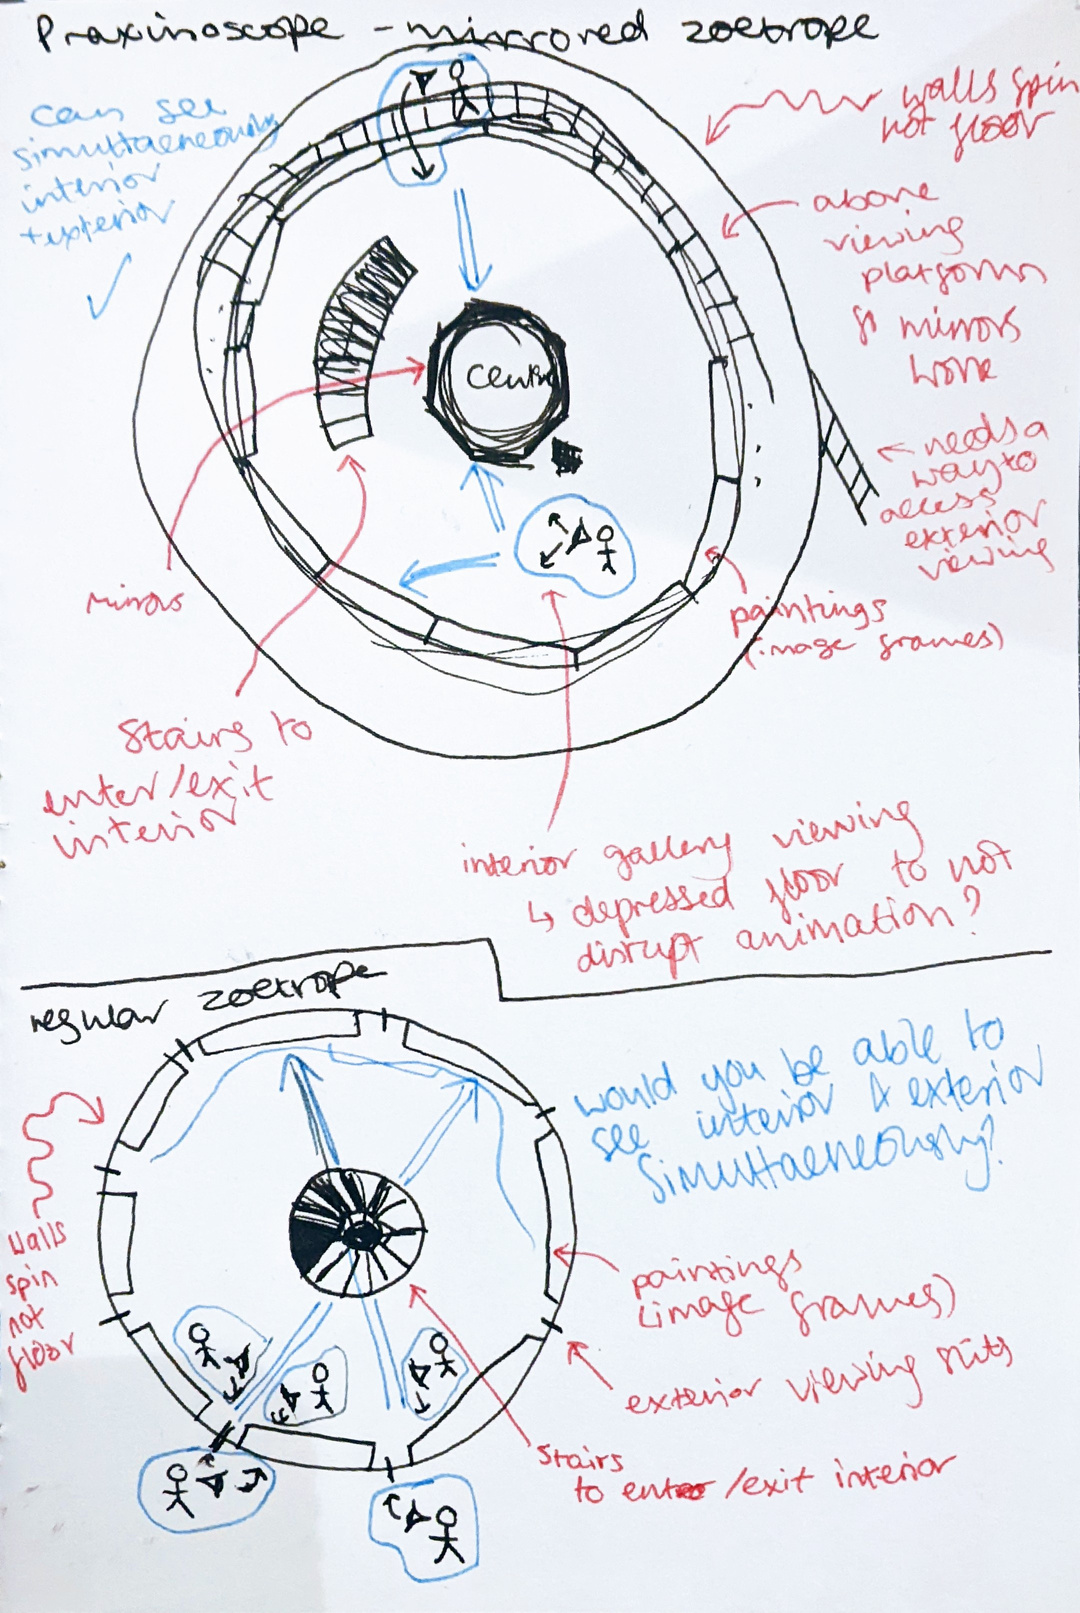 Praxinoscope - mirrored zoetrope
can see
simultaeneously
interior
+ exterior
walls spin
not floor
above
viewing
platform
so mirrors
work
centre
needs a
way to
access
exterior
viewing
mirrors
paintings
(image frames)
Stairs to
enter/exit
interior
interior gallery viewing
↳ depressed floor to not
disrupt animation?
regular zoetrope
would you be able to
see interior & exterior
simultaeneously?
walls
spin
not
floor
paintings
(image frames)
exterior viewing slits
Stairs
to enter/exit interior